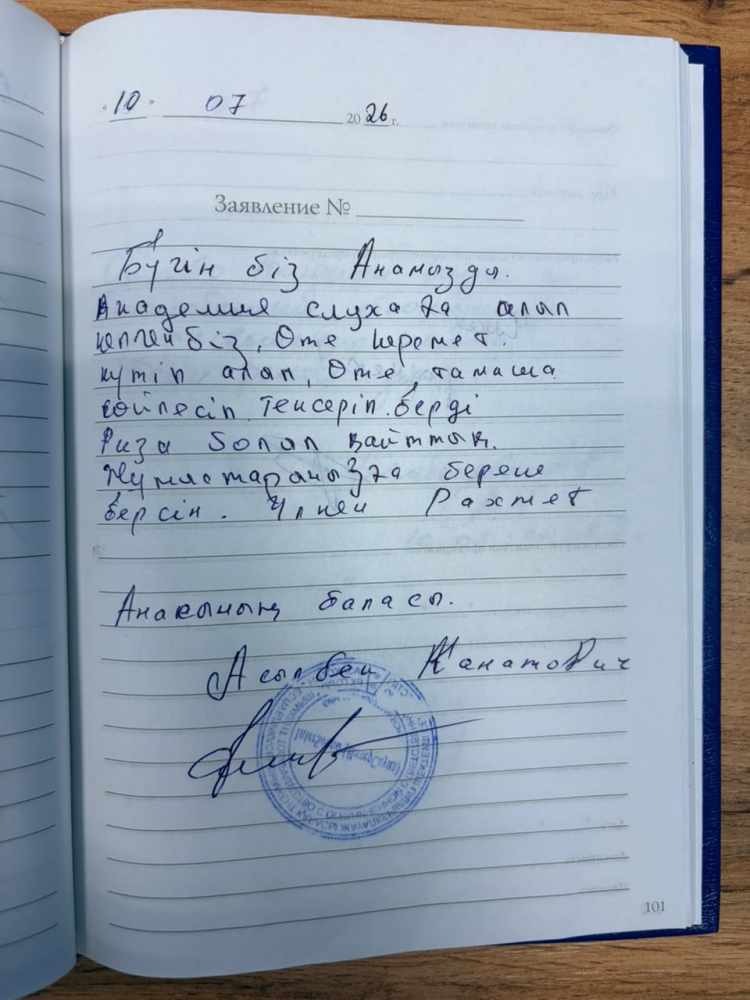 "10" 07 2026 г.
Заявление №
Бүгін біз Анамызды.
Академия слуха га алып
келген біз, Өте керемет.
күтіп алап, Өте, тамаша
сөйлесіп. тексеріп. берді
Риза болап қайттық.
Жумыстараныз га береке
берсін. Улкен Рахмет
Анасының баласы.
Асылбек Канатович
101